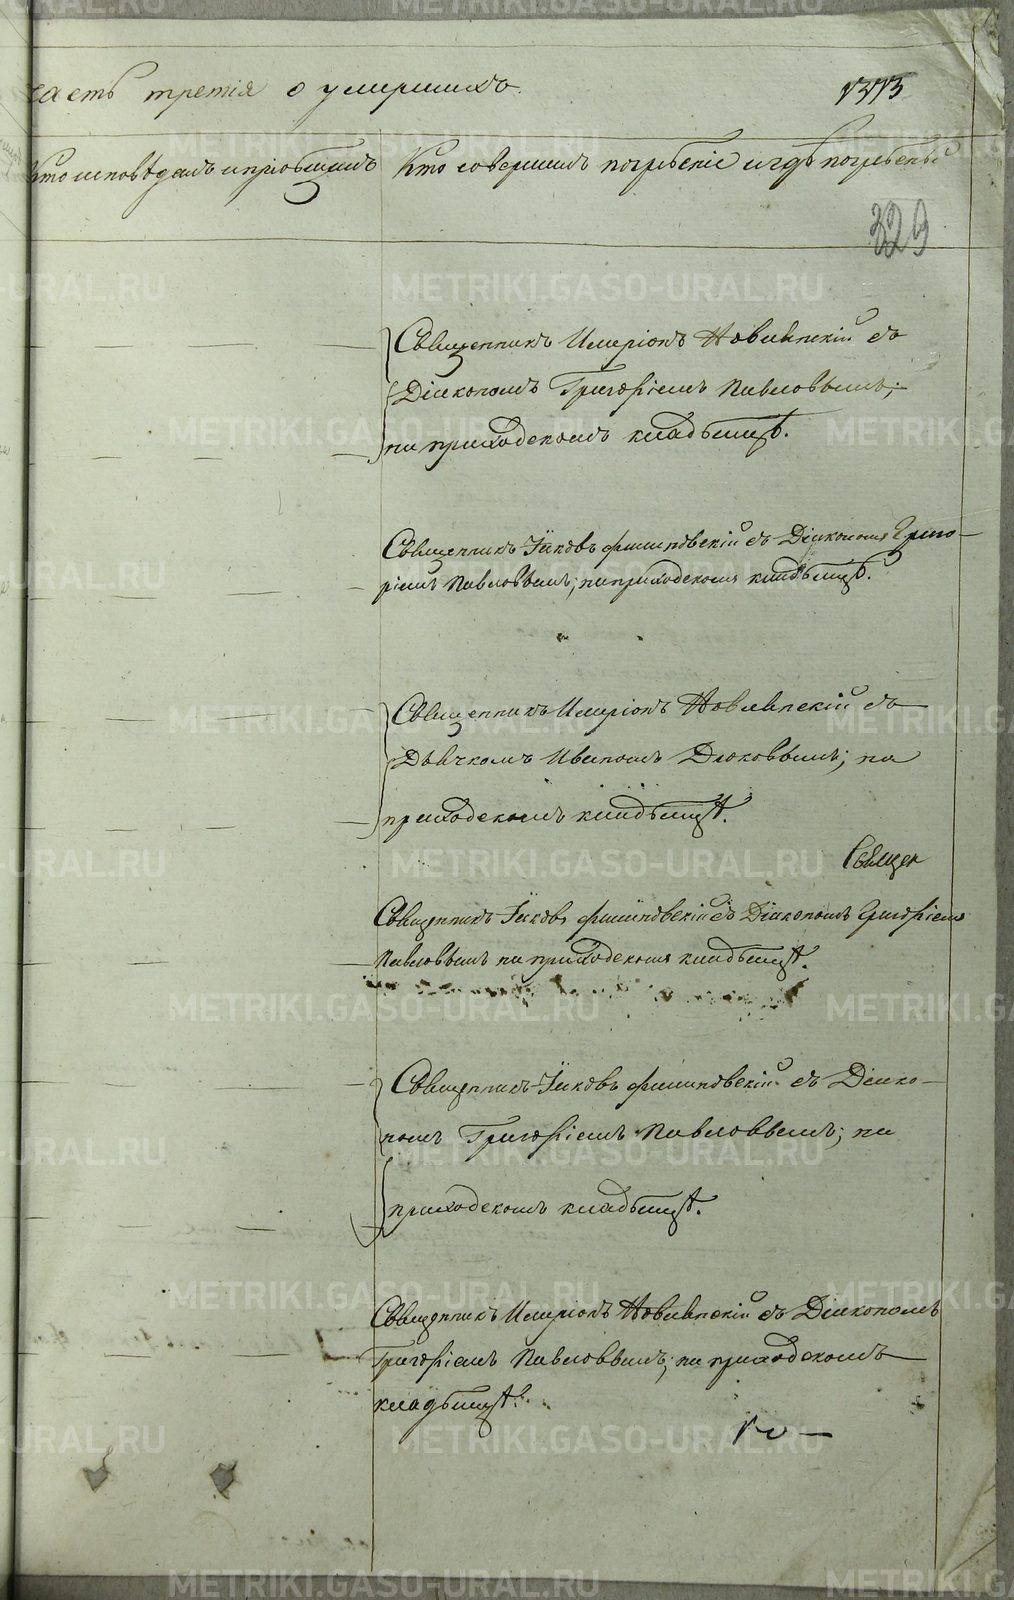 часть третія о умершихъ.
1313
Кто исповѣдалъ и пріобщилъ
Кто совершилъ погребеніе и гдѣ погребены
329
Священникъ Иларіонъ Новлянскій съ
Діакономъ Григоріемъ Павловымъ;
на приходскомъ кладбищѣ.
Священникъ Іаковъ Филиповскій съ Діакономъ Григо-
ріемъ Павловымъ; на приходскомъ кладбищѣ.
Священникъ Иларіонъ Новлянскій съ
Дьячкомъ Иваномъ Дюковымъ; на
приходскомъ кладбищѣ.
Священ
Священникъ Іаковъ Филиповскій съ Діакономъ Григоріемъ
Павловымъ на приходскомъ кладбищѣ.
Священникъ Іаковъ Филиповскій съ Діако-
номъ Григоріемъ Павловымъ; на
приходскомъ кладбищѣ.
Священникъ Иларіонъ Новлянскій съ Діакономъ
Григоріемъ Павловымъ; на приходскомъ
кладбищѣ.
METRIKI.GASO-URAL.RU